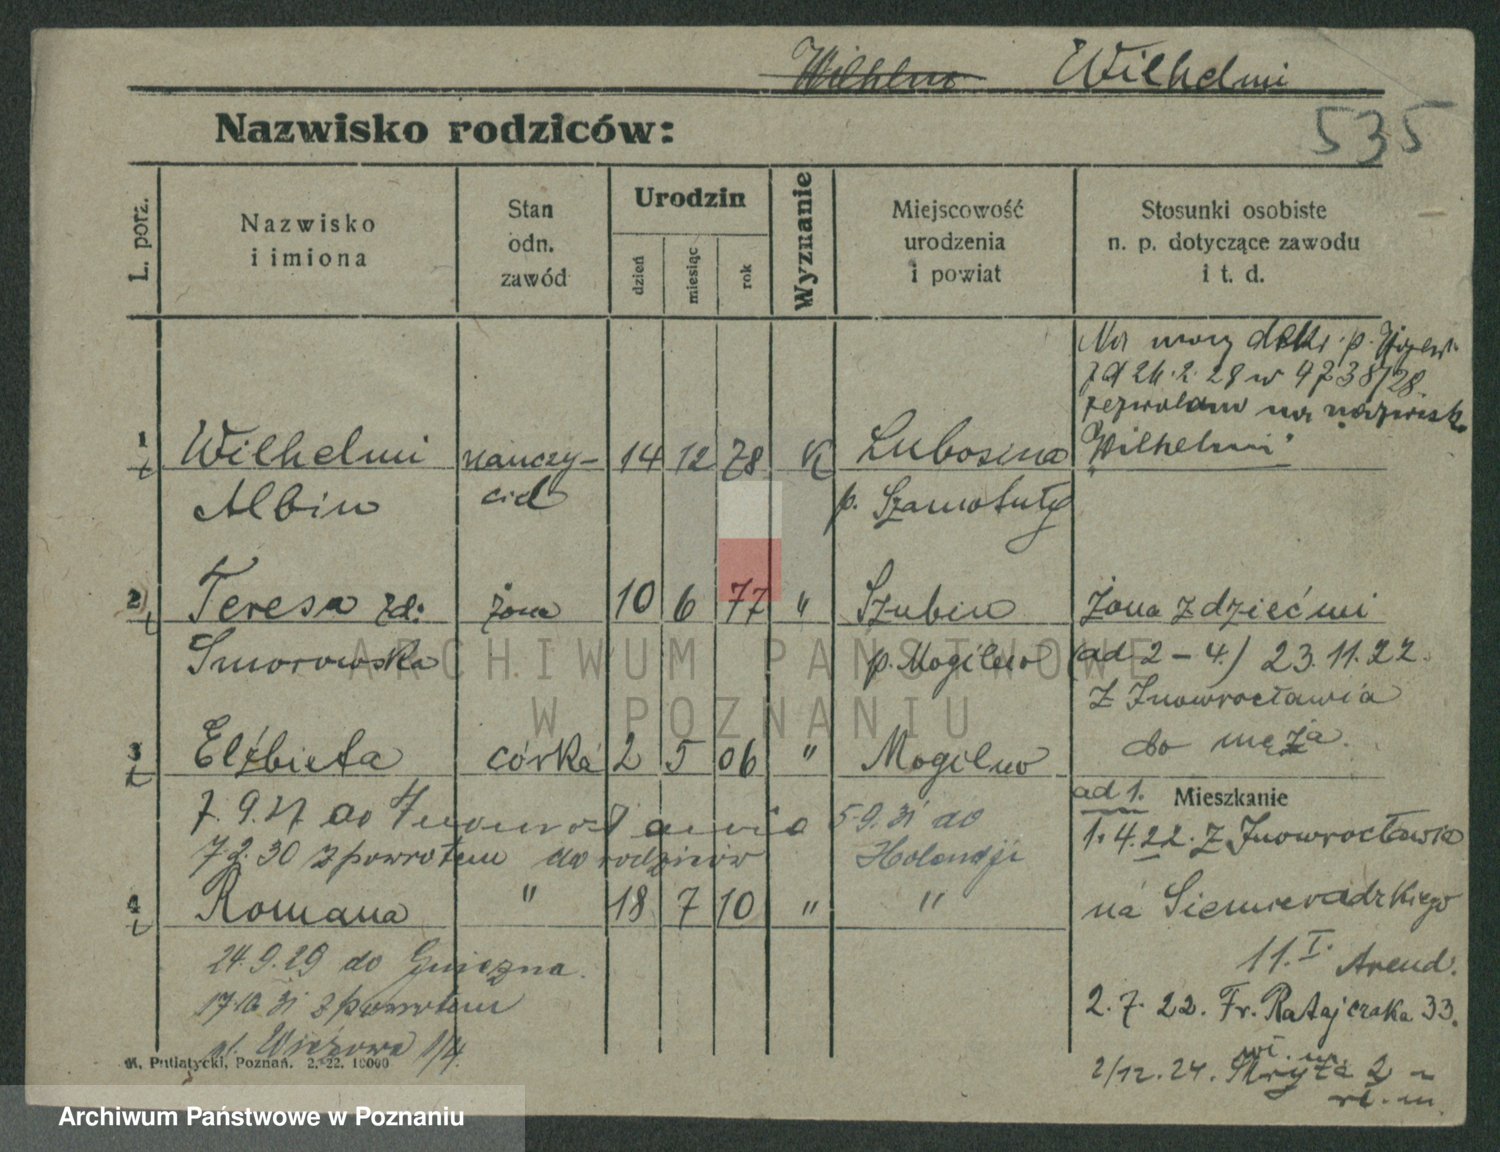 Wilhelmi
Nazwisko rodziców:
535
L. porz.
Nazwisko
i imiona
Stan
odn.
zawód
Urodzin
dzień
miesiąc
rok
Wyznanie
Miejscowość
urodzenia
i powiat
Stosunki osobiste
n. p. dotyczące zawodu
i t. d.
Na mocy dekr. p.
zezwolono na nazwisk
"Wilhelmi"
1 Wilhelmi nauczy- 14 12 78 K Lubosina
Albin ciel p. Szamotuły
2 Teresa zd: żona 10 6 77 " Szubin żona z dziećmi
Smorowska p. Mogilno (ad 2-4) 23.11.22.
z Inowrocławia
do męża.
3 Elżbieta córka 2 5 06 " Mogilno
7.9.27 do Inowrocławia 5.9.31 do
7.2.30 z powrotem do rodziców Holandji
ad 1. Mieszkanie
1.4.22. z Inowrocławia
na Siemieradzkiego
11. I. Arend.
4 Romana " 18 7 10 " "
24.9.29 do Gniezna.
17.10.31 z powrotem
ul. Wierzbowa 1/4
2.7.22. Fr. Ratajczaka 33.
wł. m.
2/12.24. Skryta 2
M. Putiatycki, Poznań. 2. 22. 10000
ARCHIWUM PAŃSTWOWE
W POZNANIU
Archiwum Państwowe w Poznaniu